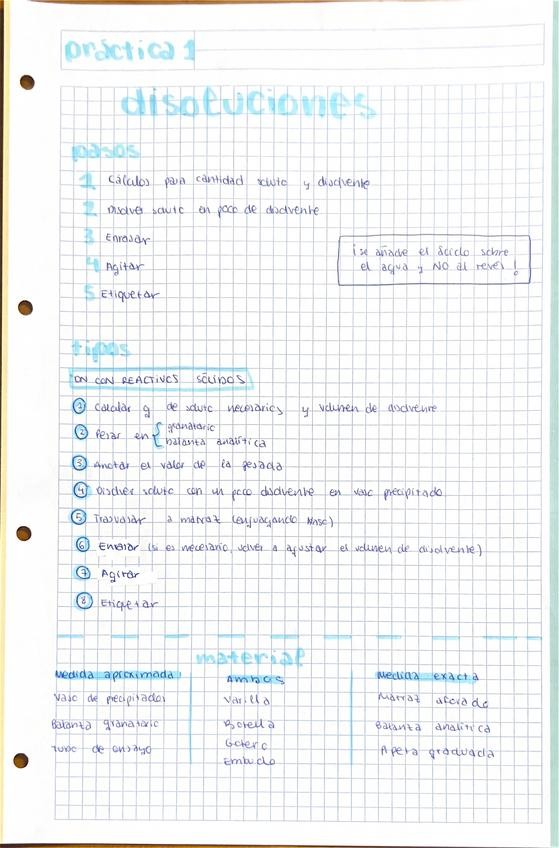 práctica 1
disoluciones
pasos
1 Cálculos para cantidad soluto y disolvente
2 Disolver soluto en poco de disolvente
3 Enrasar
4 Agitar
5 Etiquetar
¡se añade el ácido sobre
el agua y NO al revés!
tipos
CON REACTIVOS SÓLIDOS
1 Calcular g de soluto necesarios y volumen de disolvente
2 Pesar en { granatario
balanta analítica
3 Anotar el valor de la pesada
4 Disolver soluto con un poco disolvente en vaso precipitado
5 Trasvasar a matraz (enjuagando vaso)
6 Enrasar (si es necesario, volver a ajustar el volumen de disolvente)
7 Agitar
8 Etiquetar
material
Medida aproximada
Vaso de precipitados
Balanta granatario
Tubo de ensayo
Ambos
Varilla
Botella
Gotero
Embudo
Medida exacta
Matraz aforado
Balanta analítica
graduada